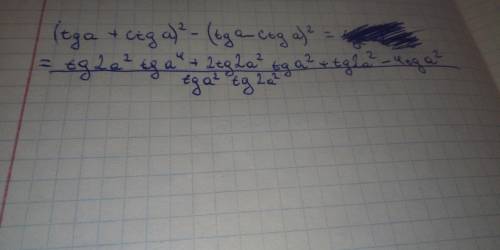 (tga + ctga)² - (tga - ctga)² =
= tg2a² tga⁴ + 2tg2a² tga² + tg2a² - 4tga²
tga² tg2a²